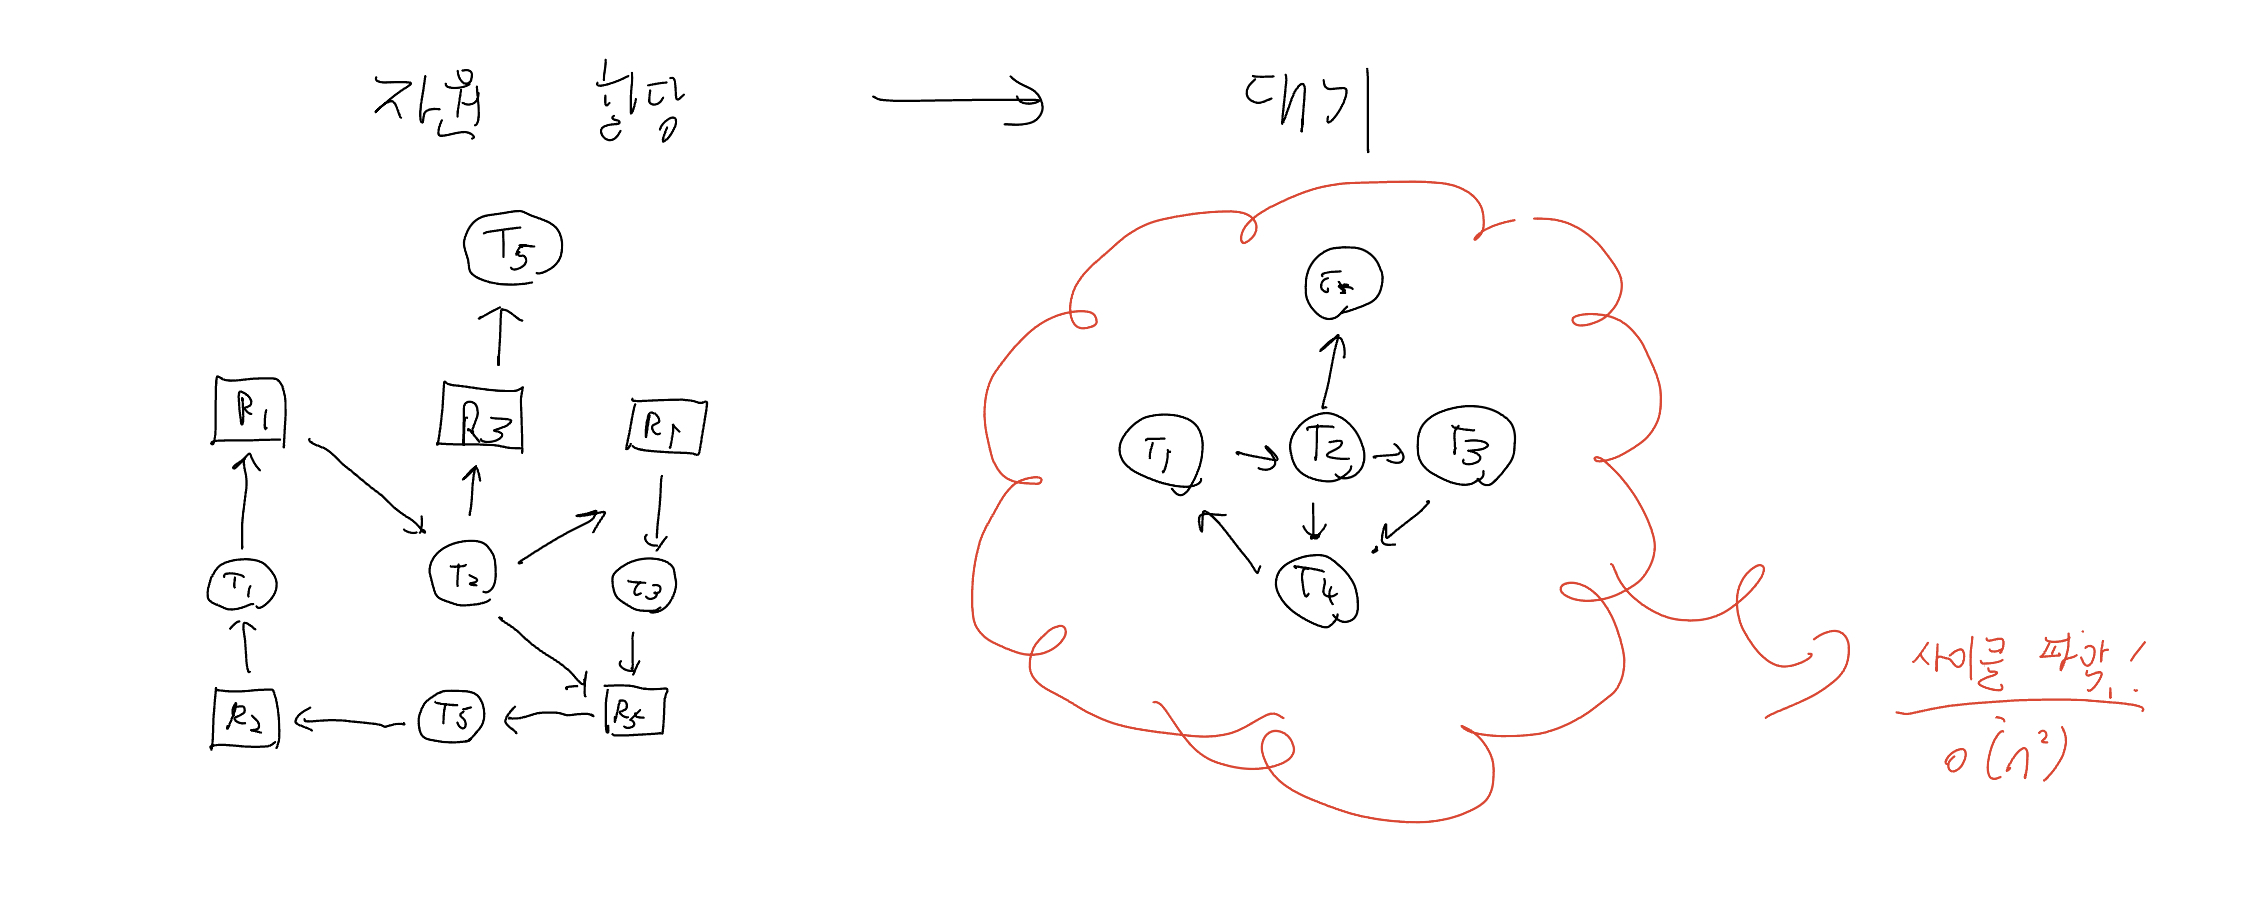 자원 할당 → 대기
T5
R1 R3 R1
T1 T2 T3
R2 T5 R5
T1 T2 T3
T4
사이클 파악!
O(n²)